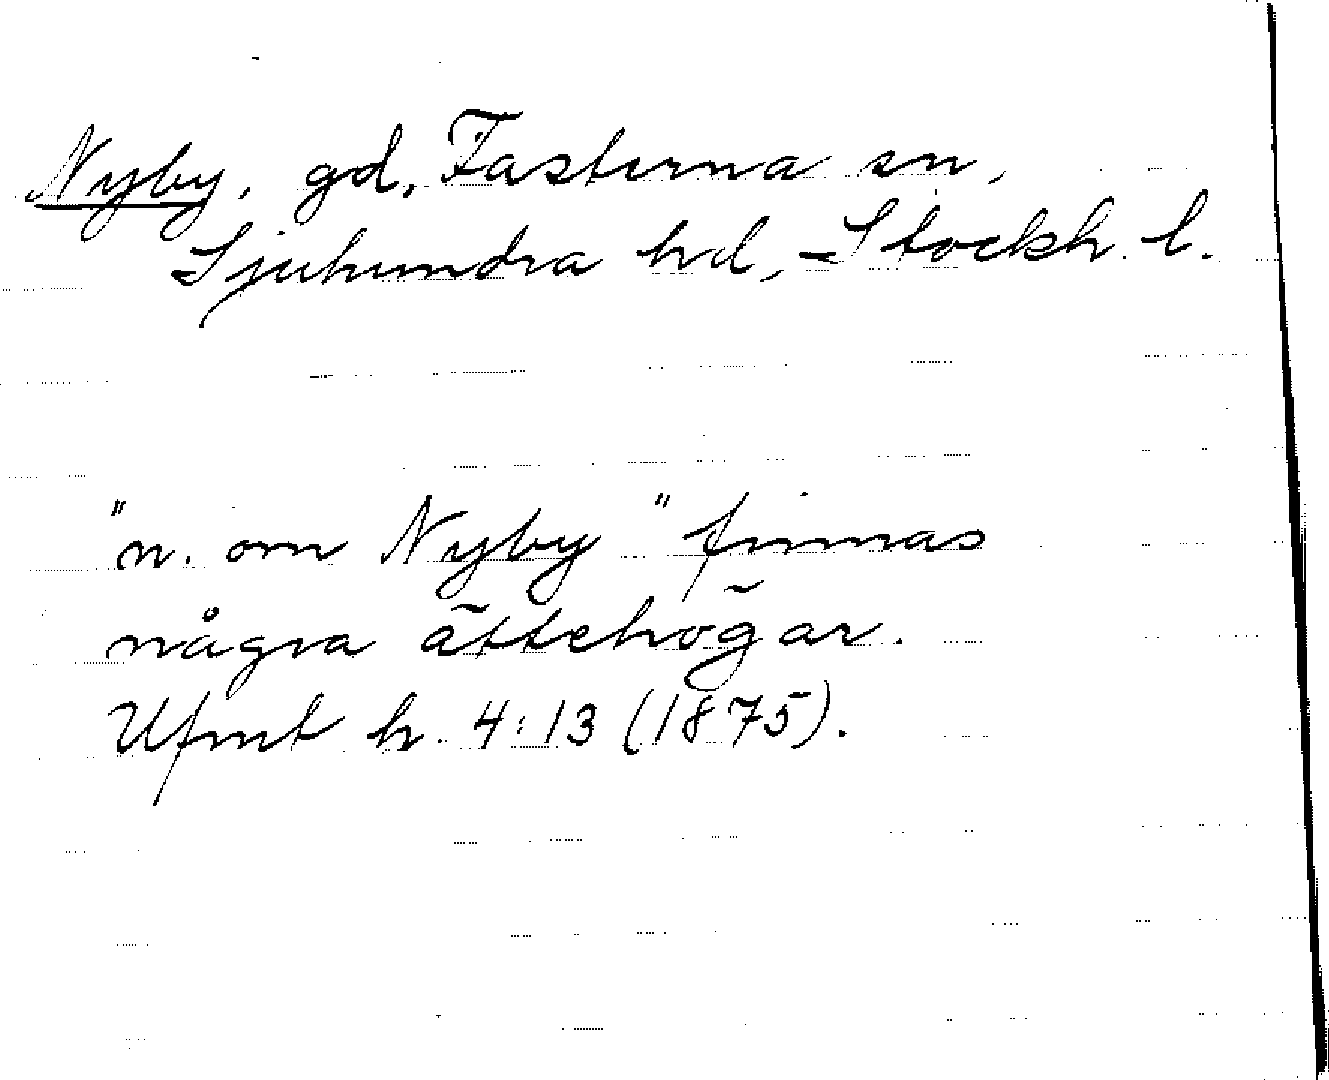 Nyby, gd, Fasterna sn,
Sjuhundra hd, Stockh. l.
"n. om Nyby" finnas
några ättehögar.
Ufmt h. 4:13 (1875).